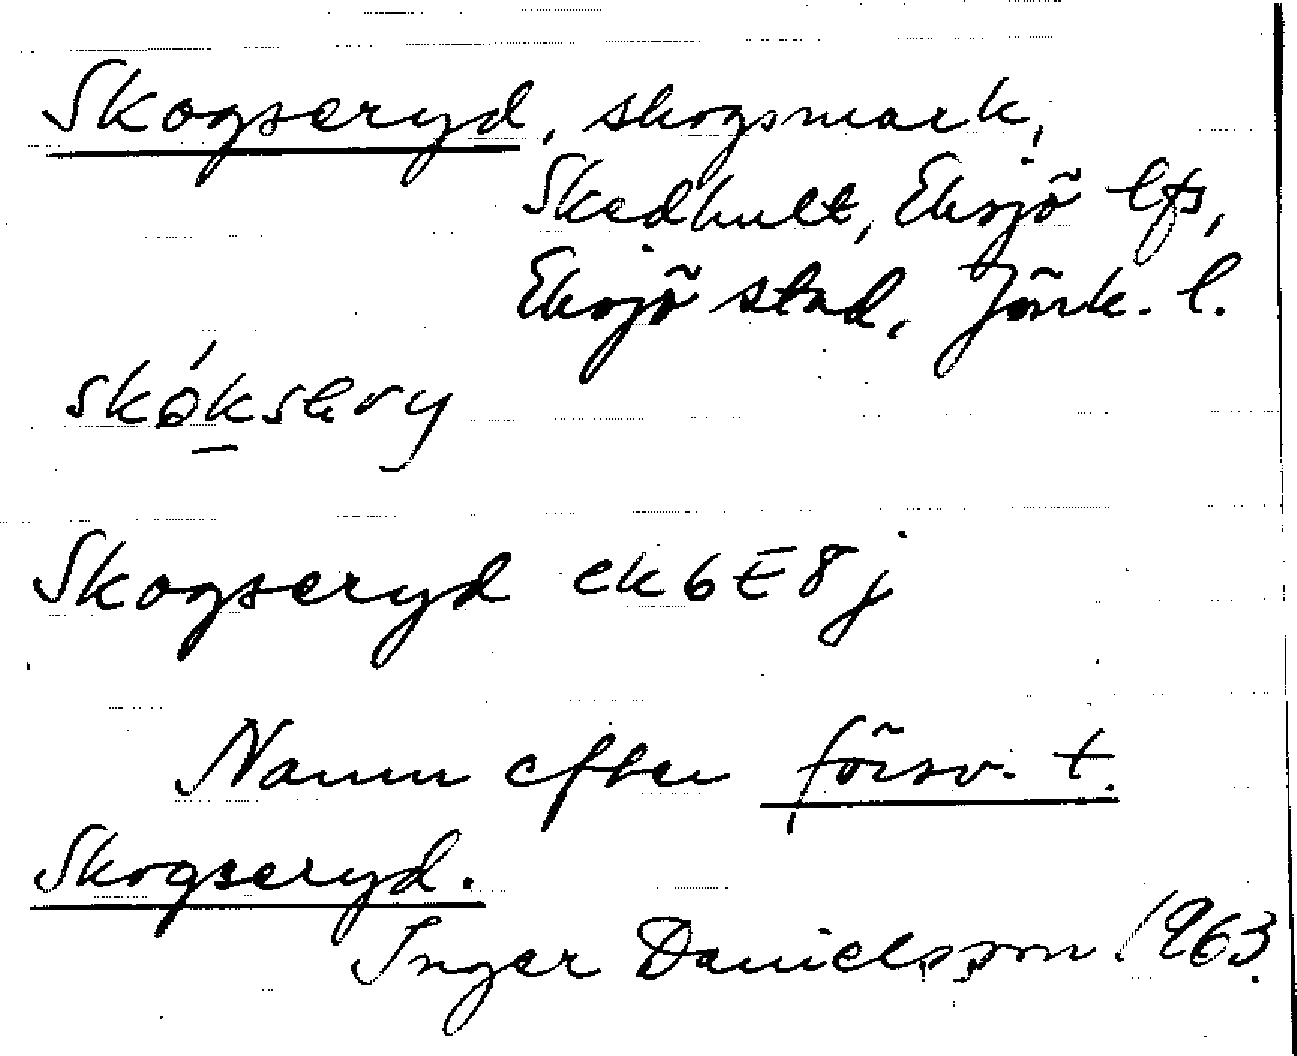 Skogseryd, skogsmark,
Skedhult, Eksjö lfs,
Eksjö stad, Jönk. l.
Skogseryd ek 6E8j
Namn efter försv. t.
Skogseryd.
Inger Danielsson 1963.